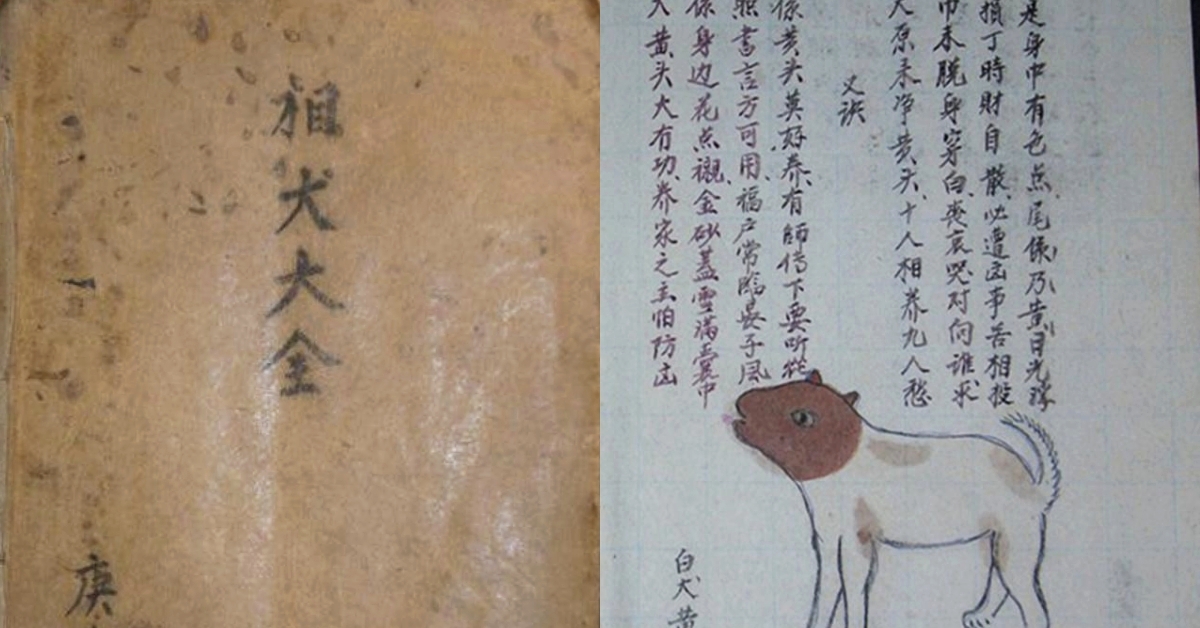 相犬大全
庚
是身中有色点、尾係乃黄目光、
損丁時財自散、必遭凶事苦相投
巾未脱身穿白、喪哀哭对向谁求
犬原来净黄头、十人相养九人愁
又诀
係黄头英好养、有師传下要听從
照書言方可用、福户常臨長子風
係身边花点襯、金砂蓋雪满囊中
入黄头大有功、养家之主怕防凶
白犬黄